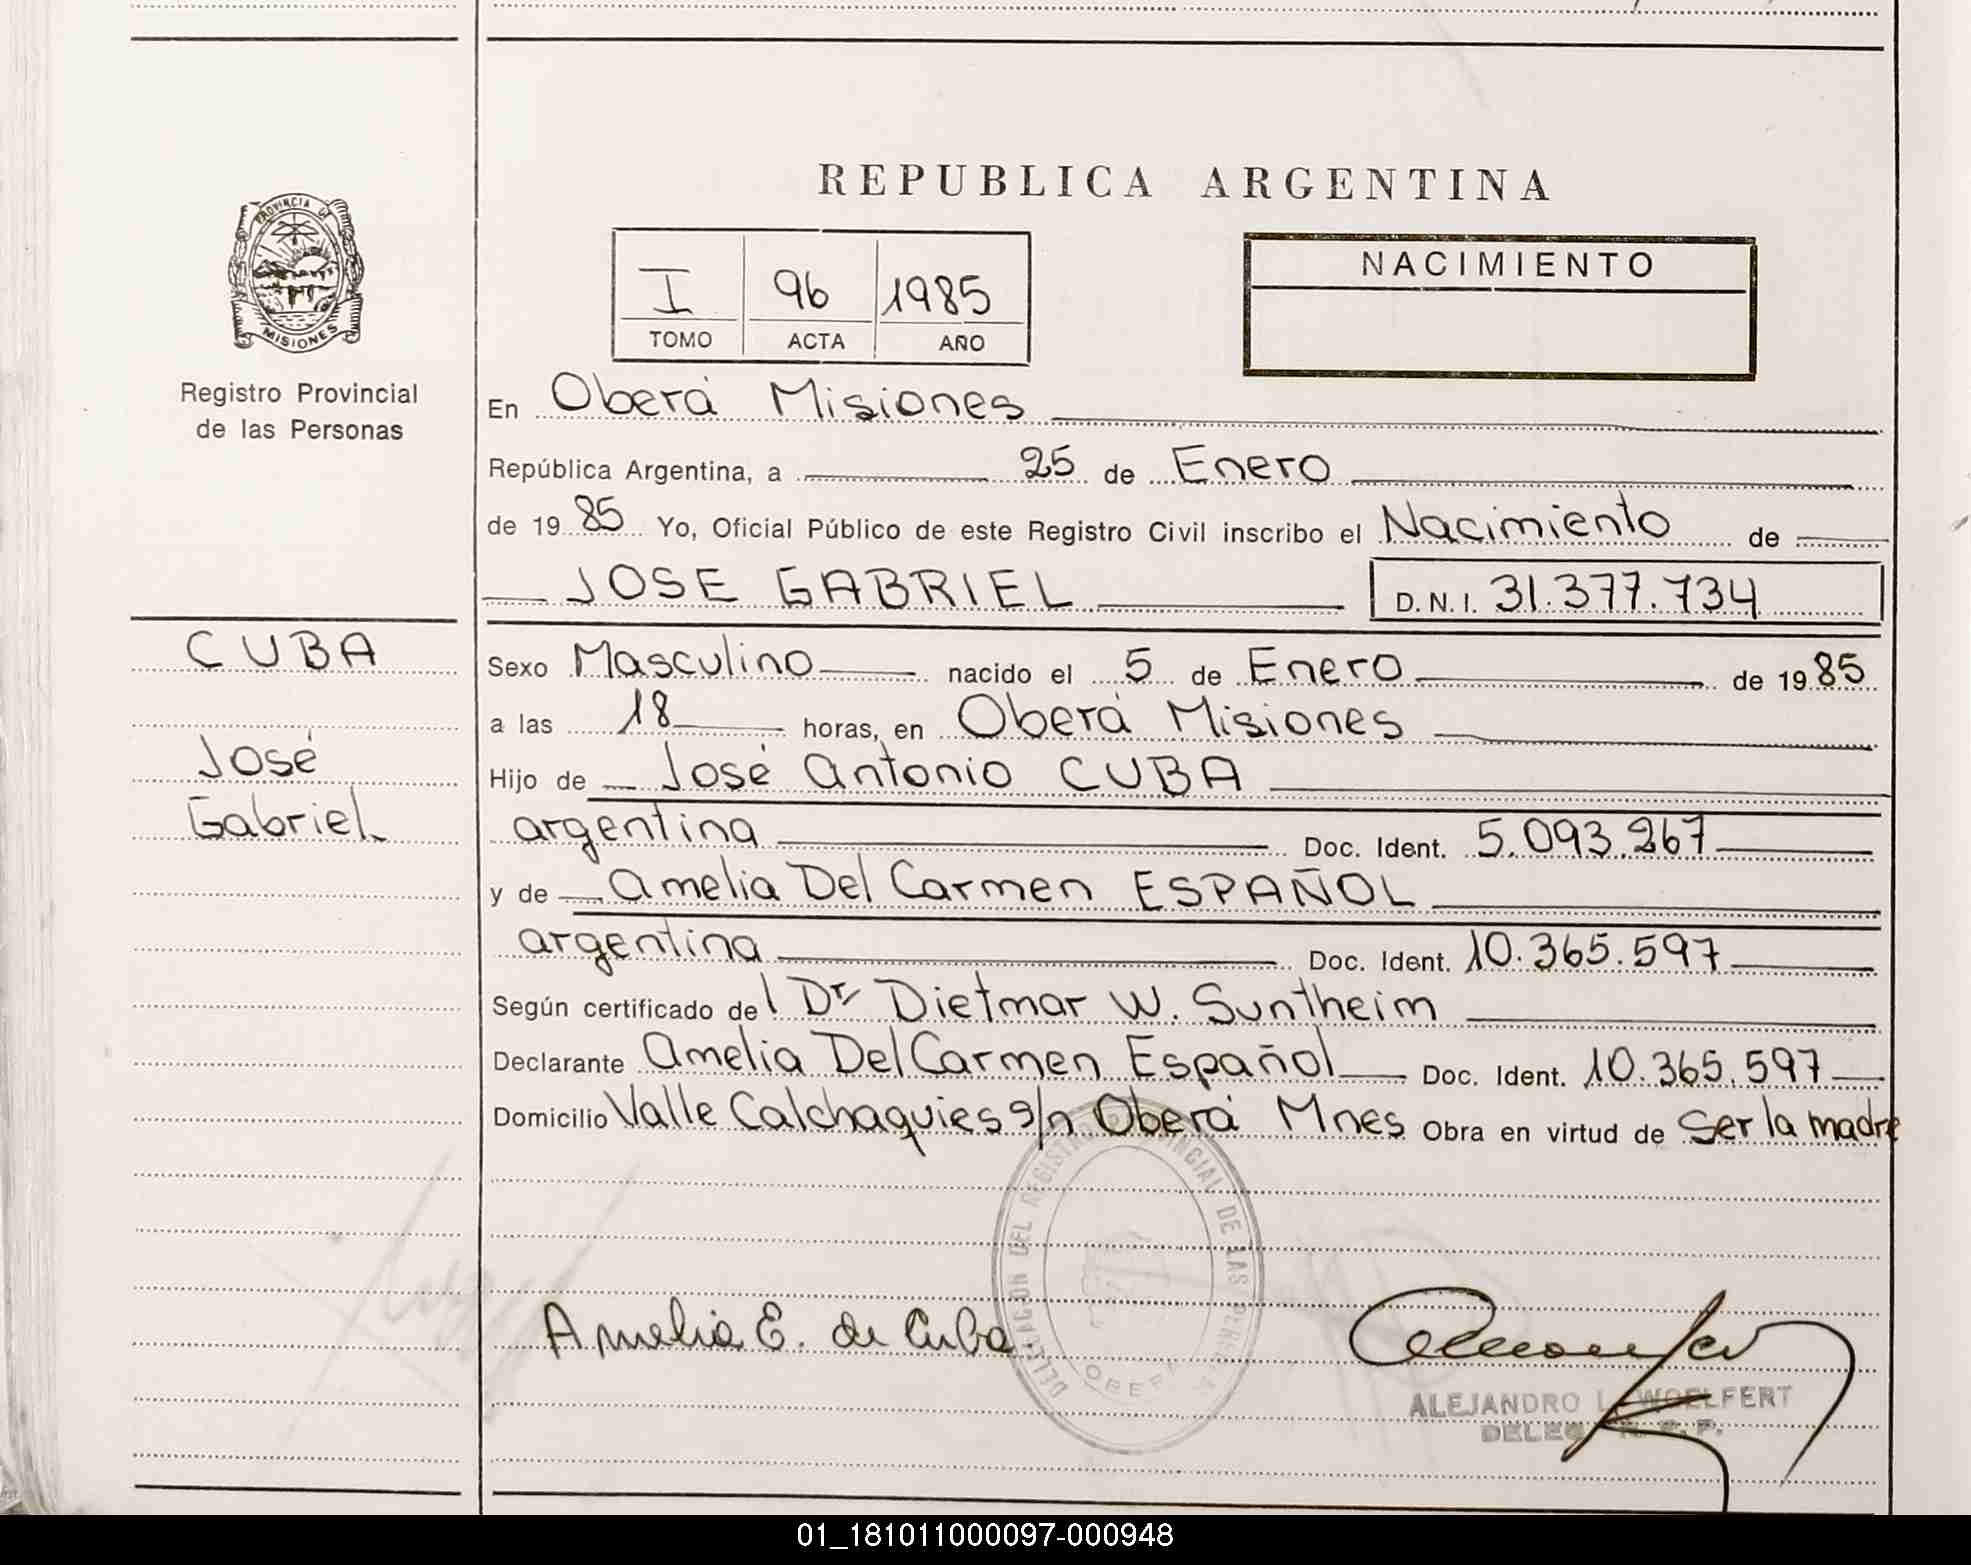 REPUBLICA ARGENTINA
PROVINCIA DE
MISIONES
Registro Provincial
de las Personas
I 96 1985
TOMO ACTA AÑO
NACIMIENTO
En Oberá Misiones
República Argentina, a 25 de Enero
de 19 85 Yo, Oficial Público de este Registro Civil inscribo el Nacimiento de
JOSE GABRIEL D.N.I. 31.377.734
CUBA
José
Gabriel
Sexo Masculino nacido el 5 de Enero de 19 85
a las 18 horas, en Oberá Misiones
Hijo de José Antonio CUBA
argentina Doc. Ident. 5.093.267
y de Amelia Del Carmen ESPAÑOL
argentina Doc. Ident. 10.365.597
Según certificado del Dr Dietmar W. Suntheim
Declarante Amelia Del Carmen Español Doc. Ident. 10.365.597
Domicilio Valle Calchaquies s/n Oberá Mnes Obra en virtud de Ser la madre
DELEGACION DEL REGISTRO PROVINCIAL DE LAS PERSONAS
OBERA
Amelia E. de Cuba
ALEJANDRO L. WOELFERT
DELEG. R. P. P.
01_181011000097-000948